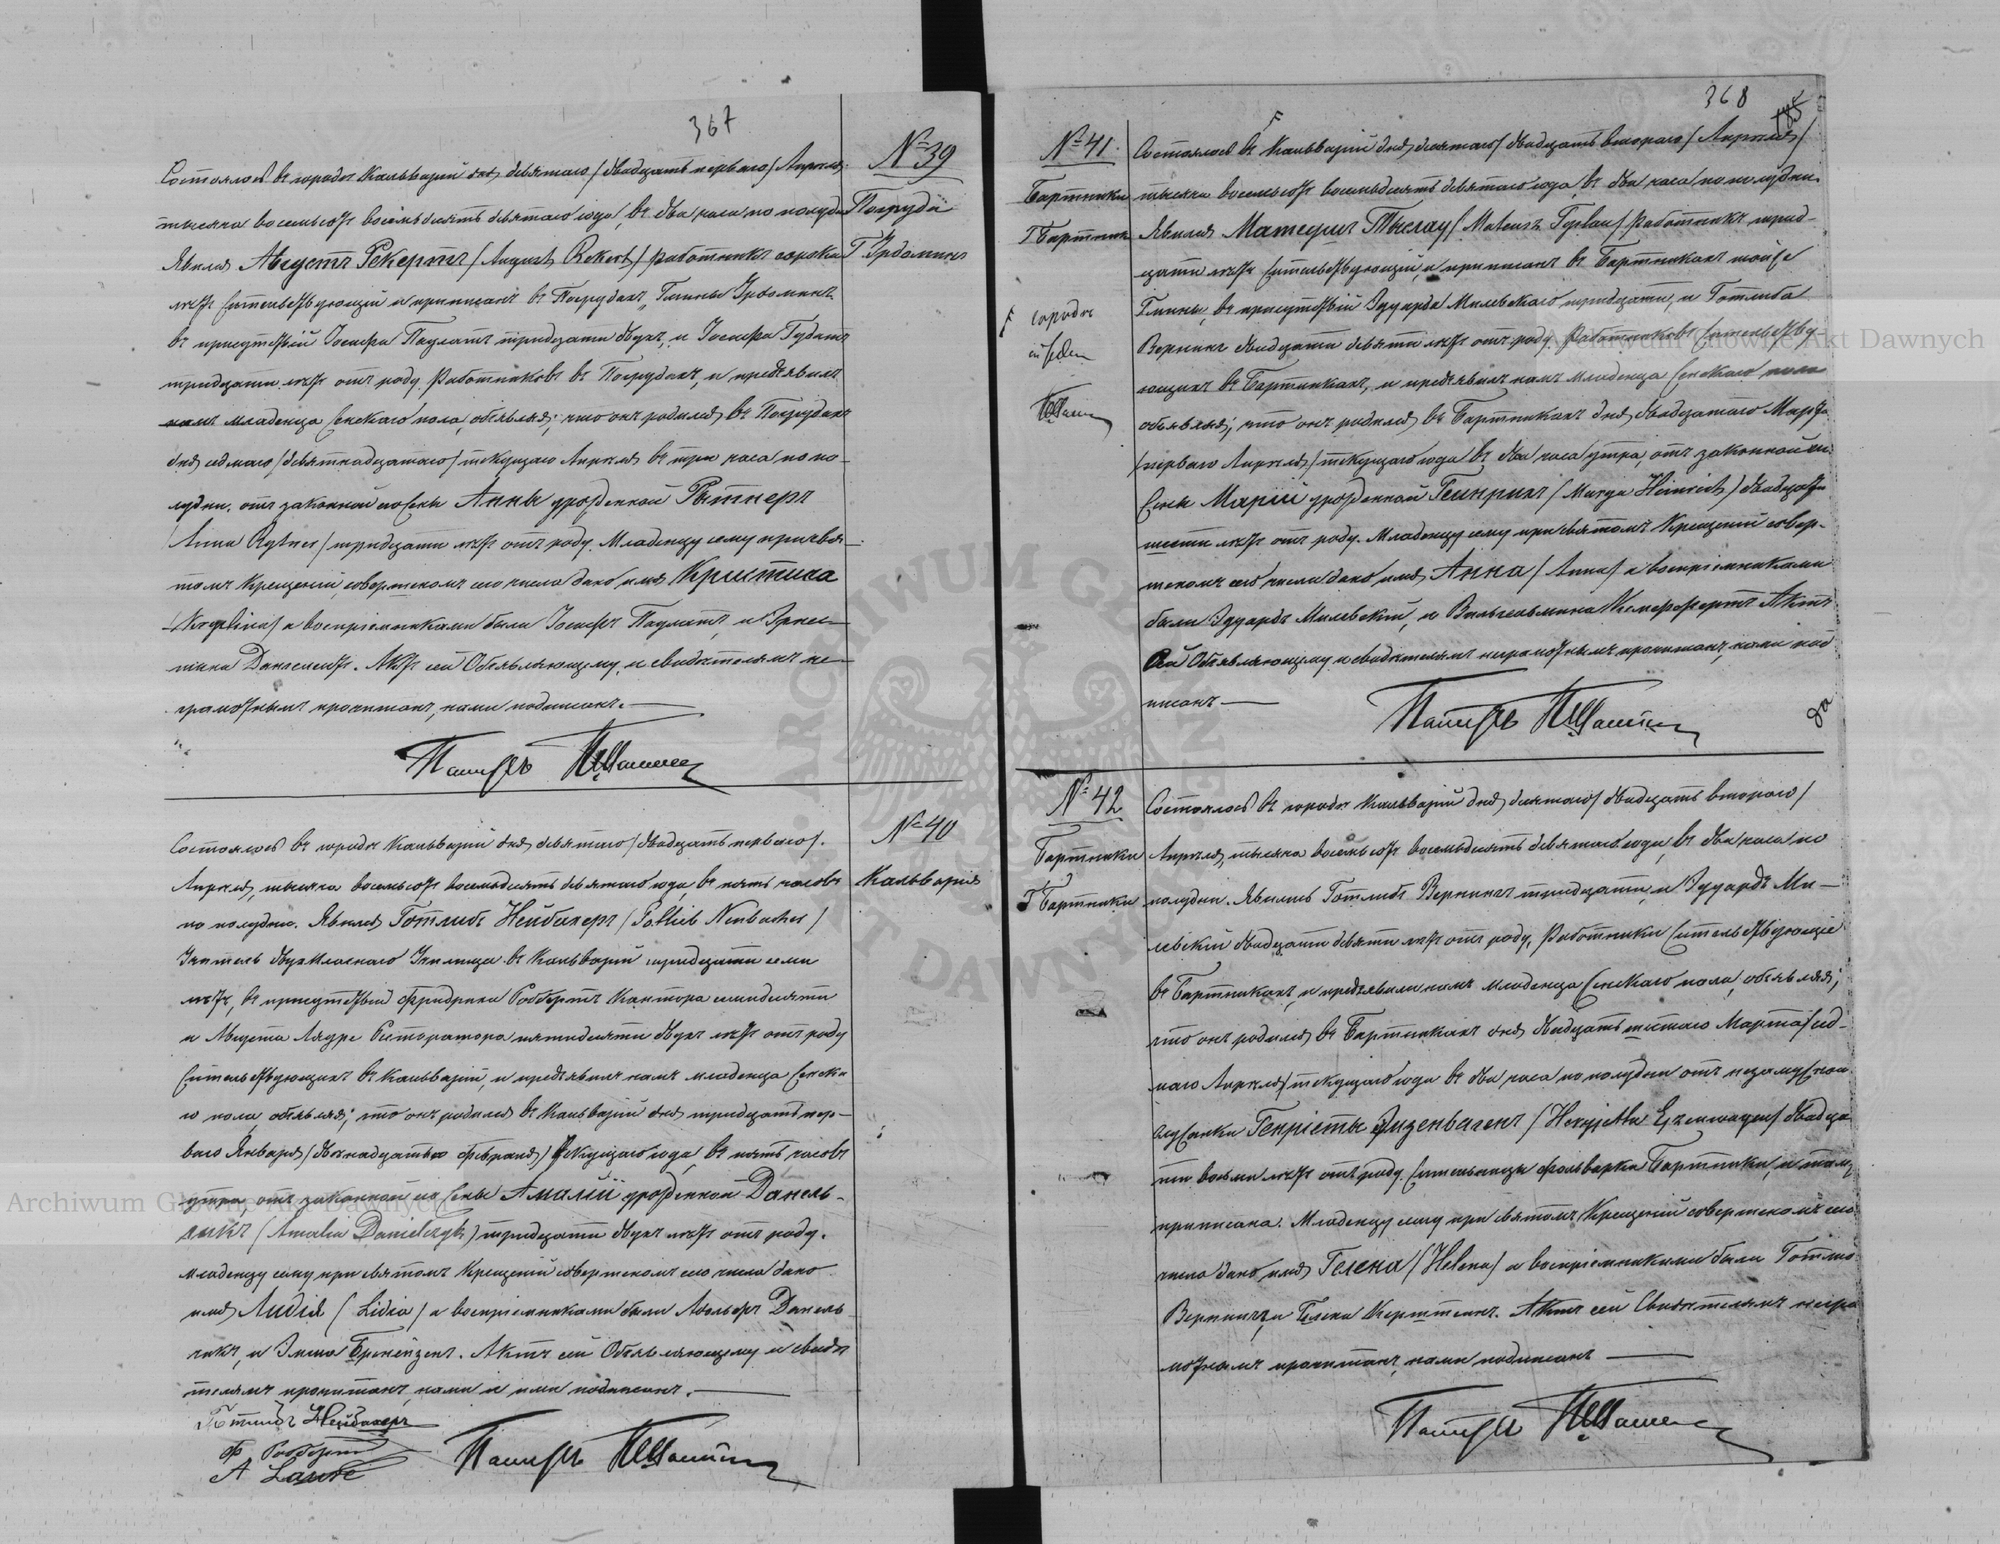 367
№ 39
Погруды
Г. Урдоминъ
Состоялось въ городѣ Кальваріи дня девятаго / двадцать перваго / Апрѣля
тысяча восемьсотъ восемьдесятъ девятаго года, въ два часа по полудни
Явился Августъ Рекертъ / August Rekert / работникъ сорока
лѣтъ жительствующій и приписанъ въ Погрудахъ, Гмины Урдоминъ
въ присутствіи Іосифа Паулатъ тридцати двухъ, и Іосифа Гудатъ
тридцати лѣтъ отъ роду работниковъ въ Погрудахъ, и предъявилъ
намъ младенца женскаго пола, объявляя; что онъ родился въ Погрудахъ
дня седмаго / девятнадцатаго / текущаго Апрѣля въ три часа по по-
лудни, отъ законной его жены Анны урожденной Рытнеръ
Anna Rytner / тридцати лѣтъ отъ роду. Младенцу сему при свя-
томъ Крещеніи, совершеномъ сего числа дано имя Кристина
/ а воспріемниками были Іосифъ Паулатъ, и Эрнес-
тина Дангелейтъ. Актъ сей Объявляющему, и свидѣтелямъ не-
грамотнымъ прочитанъ, нами подписанъ.
Пасторъ
№ 40
Кальварія
Состоялось въ городѣ Кальваріи дня девятаго / двадцать перваго /
Апрѣля, тысяча восемьсотъ восемьдесятъ девятаго года, въ пять часовъ
по полудни. Явился Готлибъ Нейбахеръ / Gottlieb Neubacher /
Учитель двухкласнаго Училища въ Кальваріи тридцати семи
лѣтъ, въ присутствіи Фридриха Робертъ Кантора семидесяти
и Августа Ляудре Ресторатора пятидесяти двухъ лѣтъ отъ роду
жительствующихъ въ Кальваріи, и предъявилъ намъ младенца женска
го пола, объявляя; что онъ родился въ Кальваріи дня тридцать пер-
ваго Января / двѣнадцатаго Февраля / текущаго года, въ пять часовъ
утра, отъ законной его жены Амаліи урожденной Данель-
чикъ / Amalia Danielczyk / тридцати двухъ лѣтъ отъ роду.
Младенцу сему при святомъ Крещеніи совершеномъ сего числа дано
имя Лидія / Lidia / а воспріемниками были Адольфъ Данель
чикъ, и Эмма Бренейзенъ. Актъ сей Объявляющему и свидѣ
телямъ прочитанъ, нами и ими подписанъ.
Готлибъ Нейбахеръ
Ф. Робертъ
A Laudre
Пасторъ
368
№ 41
Бартники
Г. Бартники
городѣ
Состоялось въ Кальваріи дня десятаго / двадцать втораго / Апрѣля /
тысяча восемьсотъ восемьдесятъ девятаго года, въ два часа по полудни
Явился Матеушъ Тыслау / Mateusz Tyslau / работникъ трид-
цати лѣтъ жительствующій, и приписанъ въ Бартникахъ тойже
Гмины, въ присутствіи Эдуарда Милевскаго тридцати, и Готлиба
Вернингъ двадцати девяти лѣтъ отъ роду работниковъ жительству
ющихъ въ Бартникахъ, и предъявилъ намъ младенца женскаго пола
объявляя; что онъ родился въ Бартникахъ дня двадцатаго Марта
/ перваго Апрѣля / текущаго года въ два часа утра, отъ законной его
жены Маріи урожденной Гейнрихъ / Marya Heinrich / двадцати
шести лѣтъ отъ роду. Младенцу сему при святомъ Крещеніи совер-
шеномъ сего числа дано имя Анна / Anna / а воспріемниками
были Эдуардъ Милевскій, и Вильгельмина Актъ
сей Объявляющему и свидѣтелямъ неграмотнымъ прочитанъ, нами под
писанъ
Пасторъ
№ 42
Бартники
Г. Бартники
Состоялось въ городѣ Кальваріи дня десятаго / двадцать втораго /
Апрѣля, тысяча восемьсотъ восемьдесятъ девятаго года, въ два часа по
полудни. Явились Готлибъ Вернингъ тридцати, и Эдуардъ Ми-
левскій двадцати девяти лѣтъ отъ роду, работники жительствующіе
въ Бартникахъ, и предъявили намъ младенца женскаго пола, объявляя;
что онъ родился въ Бартникахъ дня двадцать шестаго Марта / сед-
маго Апрѣля / текущаго года въ два часа по полудни отъ незамужной
служанки Генріеты Эйзенвагенъ / двадца
ти восьми лѣтъ отъ роду, жительницы фольварка Бартники, и тамъ
приписана. Младенцу сему при святомъ Крещеніи совершеномъ сего
числа дано имя Гелена / Helena / а воспріемниками были Готлибъ
Вернингъ, и Гелена Керштейнъ. Актъ сей Свидѣтелямъ негра
мотнымъ прочитанъ, нами подписанъ
Пасторъ
Archiwum Główne Akt Dawnych
Archiwum Główne Akt Dawnych